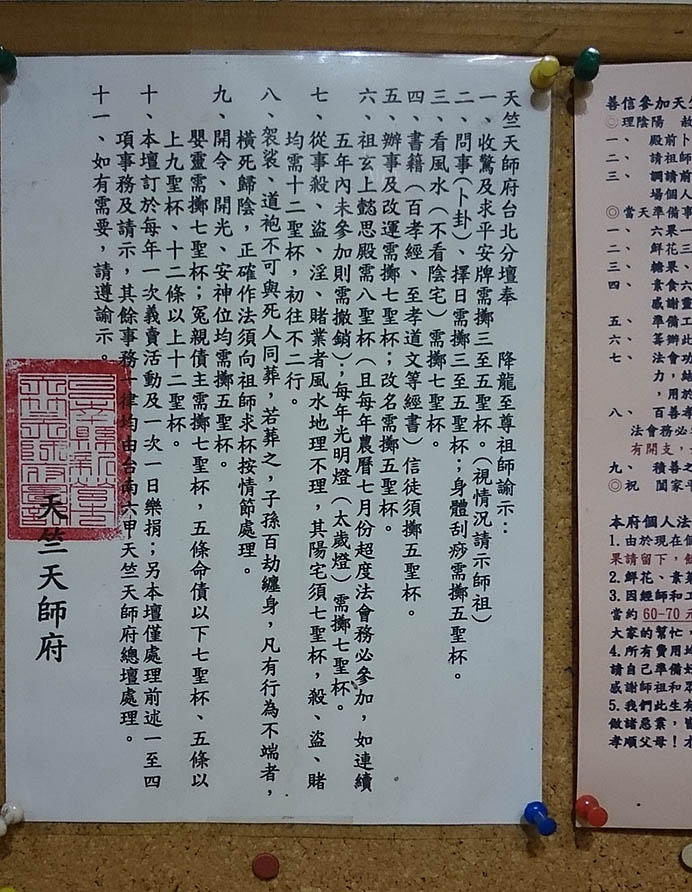 天竺天師府台北分壇奉　降龍至尊祖師諭示：
一、收驚及求平安牌需擲三至五聖杯。（視情況請示師祖）
二、問事（卜卦）、擇日需擲三至五聖杯；身體刮痧需擲五聖杯。
三、看風水（不看陰宅）需擲七聖杯。
四、書籍（百孝經、至孝道文等經書）信徒須擲五聖杯。
五、辦事及改運需擲七聖杯；改名需擲五聖杯。
六、祖玄上懿思殿需八聖杯（且每年農曆七月份超度法會務必參加，如連續
五年內未參加則需撤銷）；每年光明燈（太歲燈）需擲七聖杯。
七、從事殺、盜、淫、賭業者風水地理不理，其陽宅須七聖杯，殺、盜、賭
均需十二聖杯，初往不二行。
八、袈裟、道袍不可與死人同葬，若葬之，子孫百劫纏身，凡有行為不端者，
橫死歸陰，正確作法須向祖師求杯按情節處理。
九、開令、開光、安神位均需擲五聖杯。
嬰靈需擲七聖杯；冤親債主需擲七聖杯，五條命債以下七聖杯、五條以
上九聖杯、十二條以上十二聖杯。
十、本壇訂於每年一次義賣活動及一次一日樂捐；另本壇僅處理前述一至四
項事務及請示，其餘事務一律均由台南六甲天竺天師府總壇處理。
十一、如有需要，請遵諭示。
天竺天師府
善信參加天竺
◎理陰陽
一、殿前卜
二、請祖師
三、調請前
場個人
◎當天準備事
一、六果一
二、鮮花三
三、糖果、
四、素食六
感謝靈
五、準備工
六、籌辦此
七、法會功
力，結
，用於
八、百善孝
法會務必
有開支，
九、積善之
◎祝　闔家平
本府個人法
1.由於現在個
果請留下，
2.鮮花、素菜
3.因經師和工
當約 60-70 元
大家的幫忙，
4.所有費用均
請自己準備好
感謝師祖和眾
5.我們此生有
做諸惡業，皆
孝順父母！才